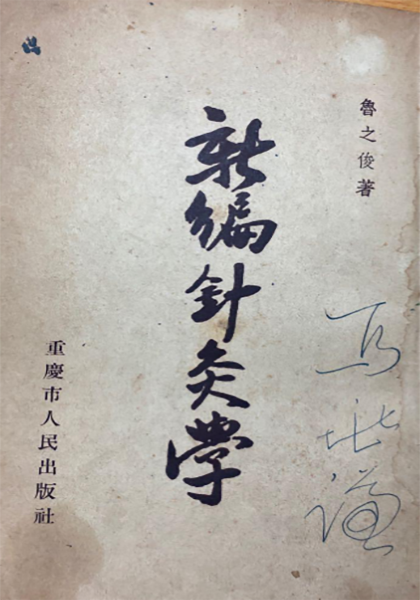 魯之俊著
新編針灸學
重慶市人民出版社